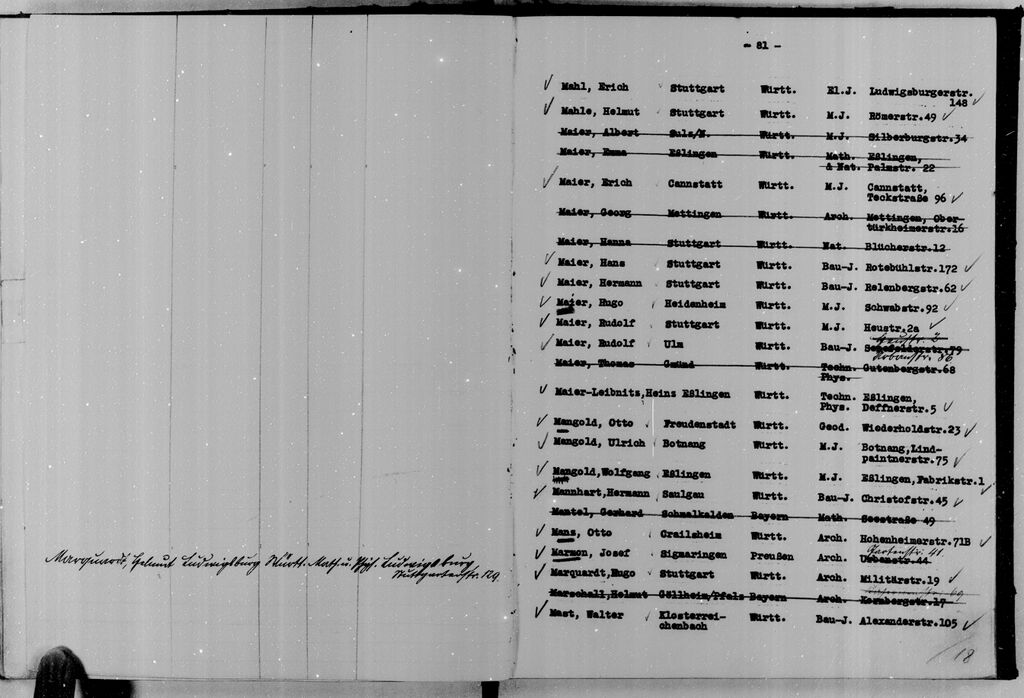 Marquardt, Helmut Ludwigsburg Württ. Math. u. Phys. Ludwigsburg
Stuttgarterstr. 129
- 81 -
Mahl, Erich Stuttgart Württ. El.J. Ludwigsburgerstr.
148
Mahle, Helmut Stuttgart Württ. M.J. Römerstr.49
Maier, Albert Sulz/N. Württ. M.J. Silberburgstr.34
Maier, Emma Eßlingen Württ. Math. Eßlingen,
& Nat. Palmstr. 22
Maier, Erich Cannstatt Württ. M.J. Cannstatt,
Teckstraße 96
Maier, Georg Mettingen Württ. Arch. Mettingen, Ober-
türkheimerstr.16
Maier, Hanna Stuttgart Württ. Nat. Blücherstr.12
Maier, Hans Stuttgart Württ. Bau-J. Rotebühlstr.172
Maier, Hermann Stuttgart Württ. Bau-J. Relenbergstr.62
Maier, Hugo Heidenheim Württ. M.J. Schwabstr.92
Maier, Rudolf Stuttgart Württ. M.J. Heustr.2a
Maier, Rudolf Ulm Württ. Bau-J.
Urbanstr. 86
Maier, Thomas Gmünd Württ. Techn. Gutenbergstr.68
Phys.
Maier-Leibnitz,Heinz Eßlingen Württ. Techn. Eßlingen,
Phys. Deffnerstr.5
Mangold, Otto Freudenstadt Württ. Geod. Wiederholdstr.23
Mangold, Ulrich Botnang Württ. M.J. Botnang,Lind-
paintnerstr.75
Mangold,Wolfgang Eßlingen Württ. M.J. Eßlingen,Fabrikstr.1
Mannhart,Hermann Saulgau Württ. Bau-J. Christofstr.45
Mantel, Gerhard Schmalkalden Bayern Math. Seestraße 49
Manz, Otto Crailsheim Württ. Arch. Hohenheimerstr.71B
Gartenstr. 41.
Marmon, Josef Sigmaringen Preußen Arch.
Marquardt,Hugo Stuttgart Württ. Arch. Militärstr.19
Marschall,Helmut Göllheim/Pfalz Bayern Arch. Kernbergstr.17
Mast, Walter Klosterrei- Württ. Bau-J. Alexanderstr.105
chenbach
18